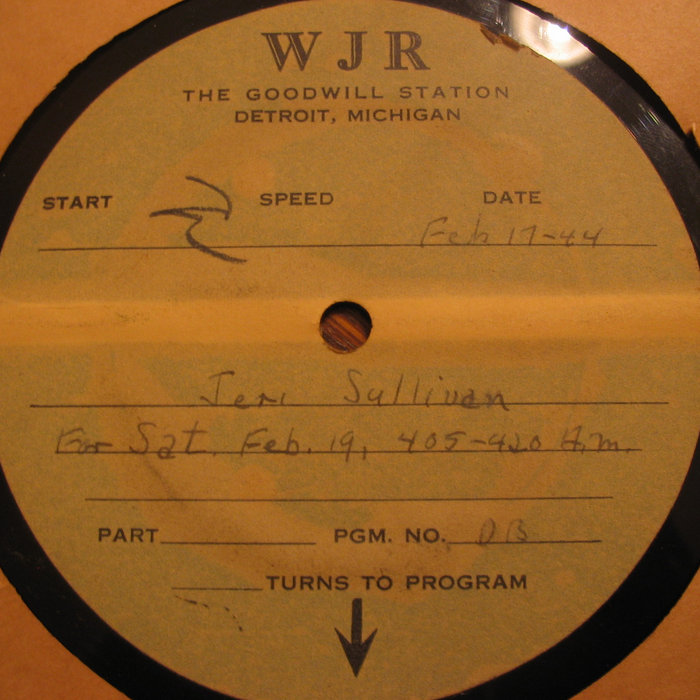 WJR
THE GOODWILL STATION
DETROIT, MICHIGAN
START SPEED DATE
Feb 17-44
Jeri Sullivan
For Sat. Feb. 19, 405-420 A.m.
PART PGM. NO. DB
TURNS TO PROGRAM